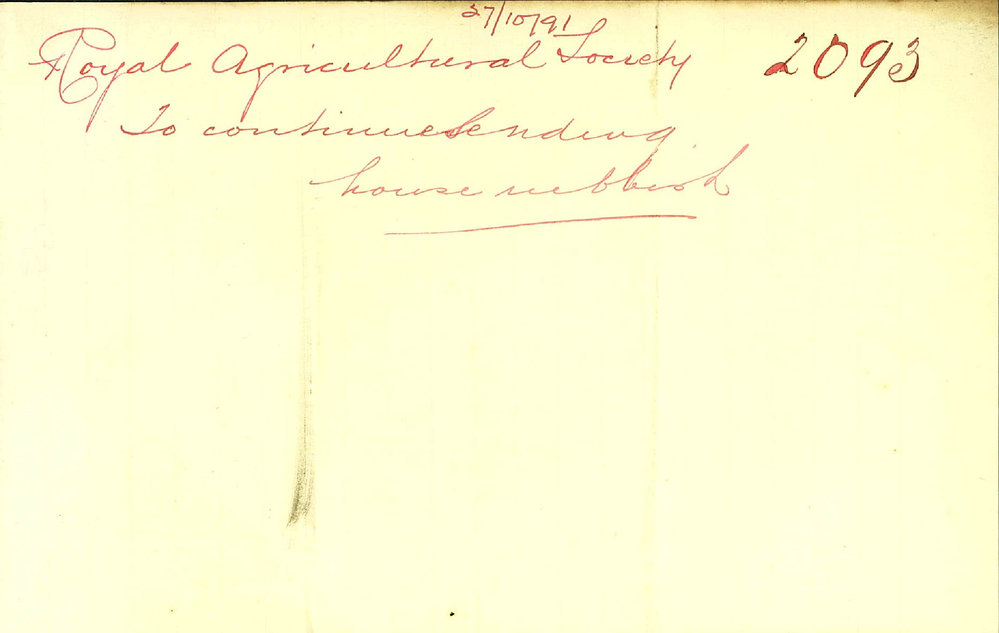 27/10/91
Royal Agricultural Society 2093
To continue sending
house rubbish